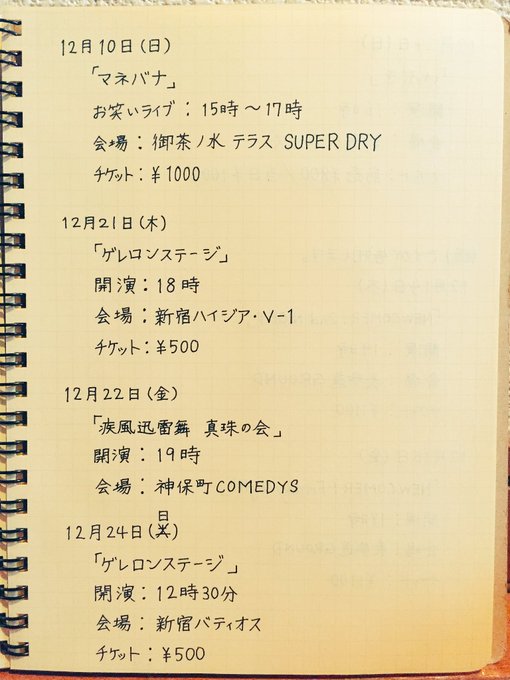 12月10日(日)
「マネバナ」
お笑いライブ：15時～17時
会場：御茶ノ水 テラス SUPER DRY
チケット：¥1000
12月21日(木)
「ゲレロンステージ」
開演：18時
会場：新宿ハイジア・V-1
チケット：¥500
12月22日(金)
「疾風迅雷舞 真珠の会」
開演：19時
会場：神保町COMEDYS
12月24日(日)
「ゲレロンステージ」
開演：12時30分
会場：新宿バティオス
チケット：¥500